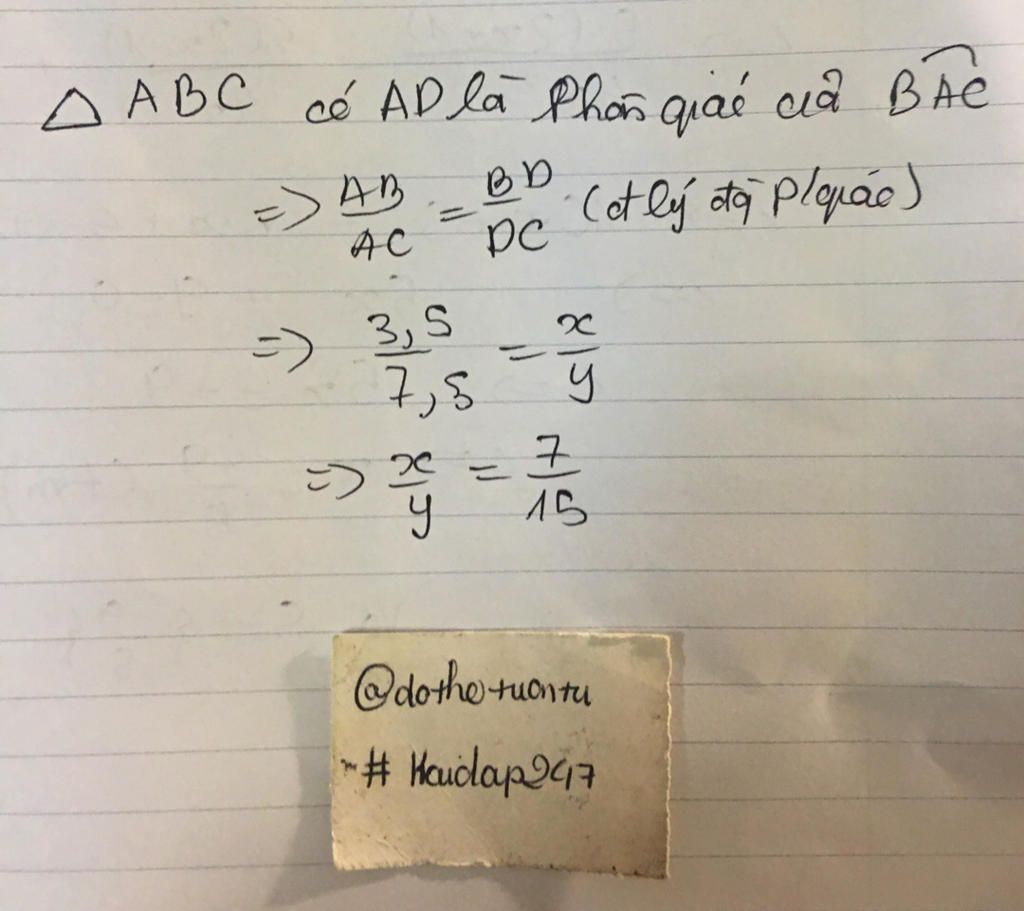 △ ABC có AD là phân giác của BAC
=> AB/AC = BD/DC (đ lý đg p/giác)
=> 3,5/7,5 = x/y
=> x/y = 7/15
@dothetuantu
# Hoidap247